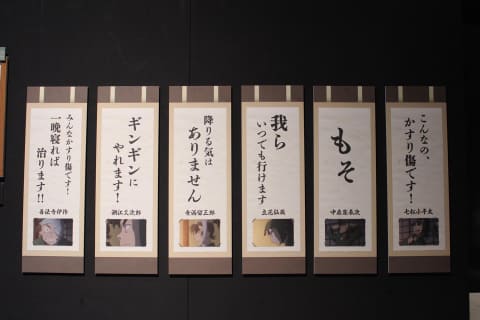 こんなの、
かすり傷です!
七松小平太
もそ
中在家長次
我ら
いつでも行けます
立花仙蔵
降りる気は
ありません
食満留三郎
ギンギンに
やれます!
潮江文次郎
みんなかすり傷です!
一晩寝れば
治ります!!
善法寺伊作